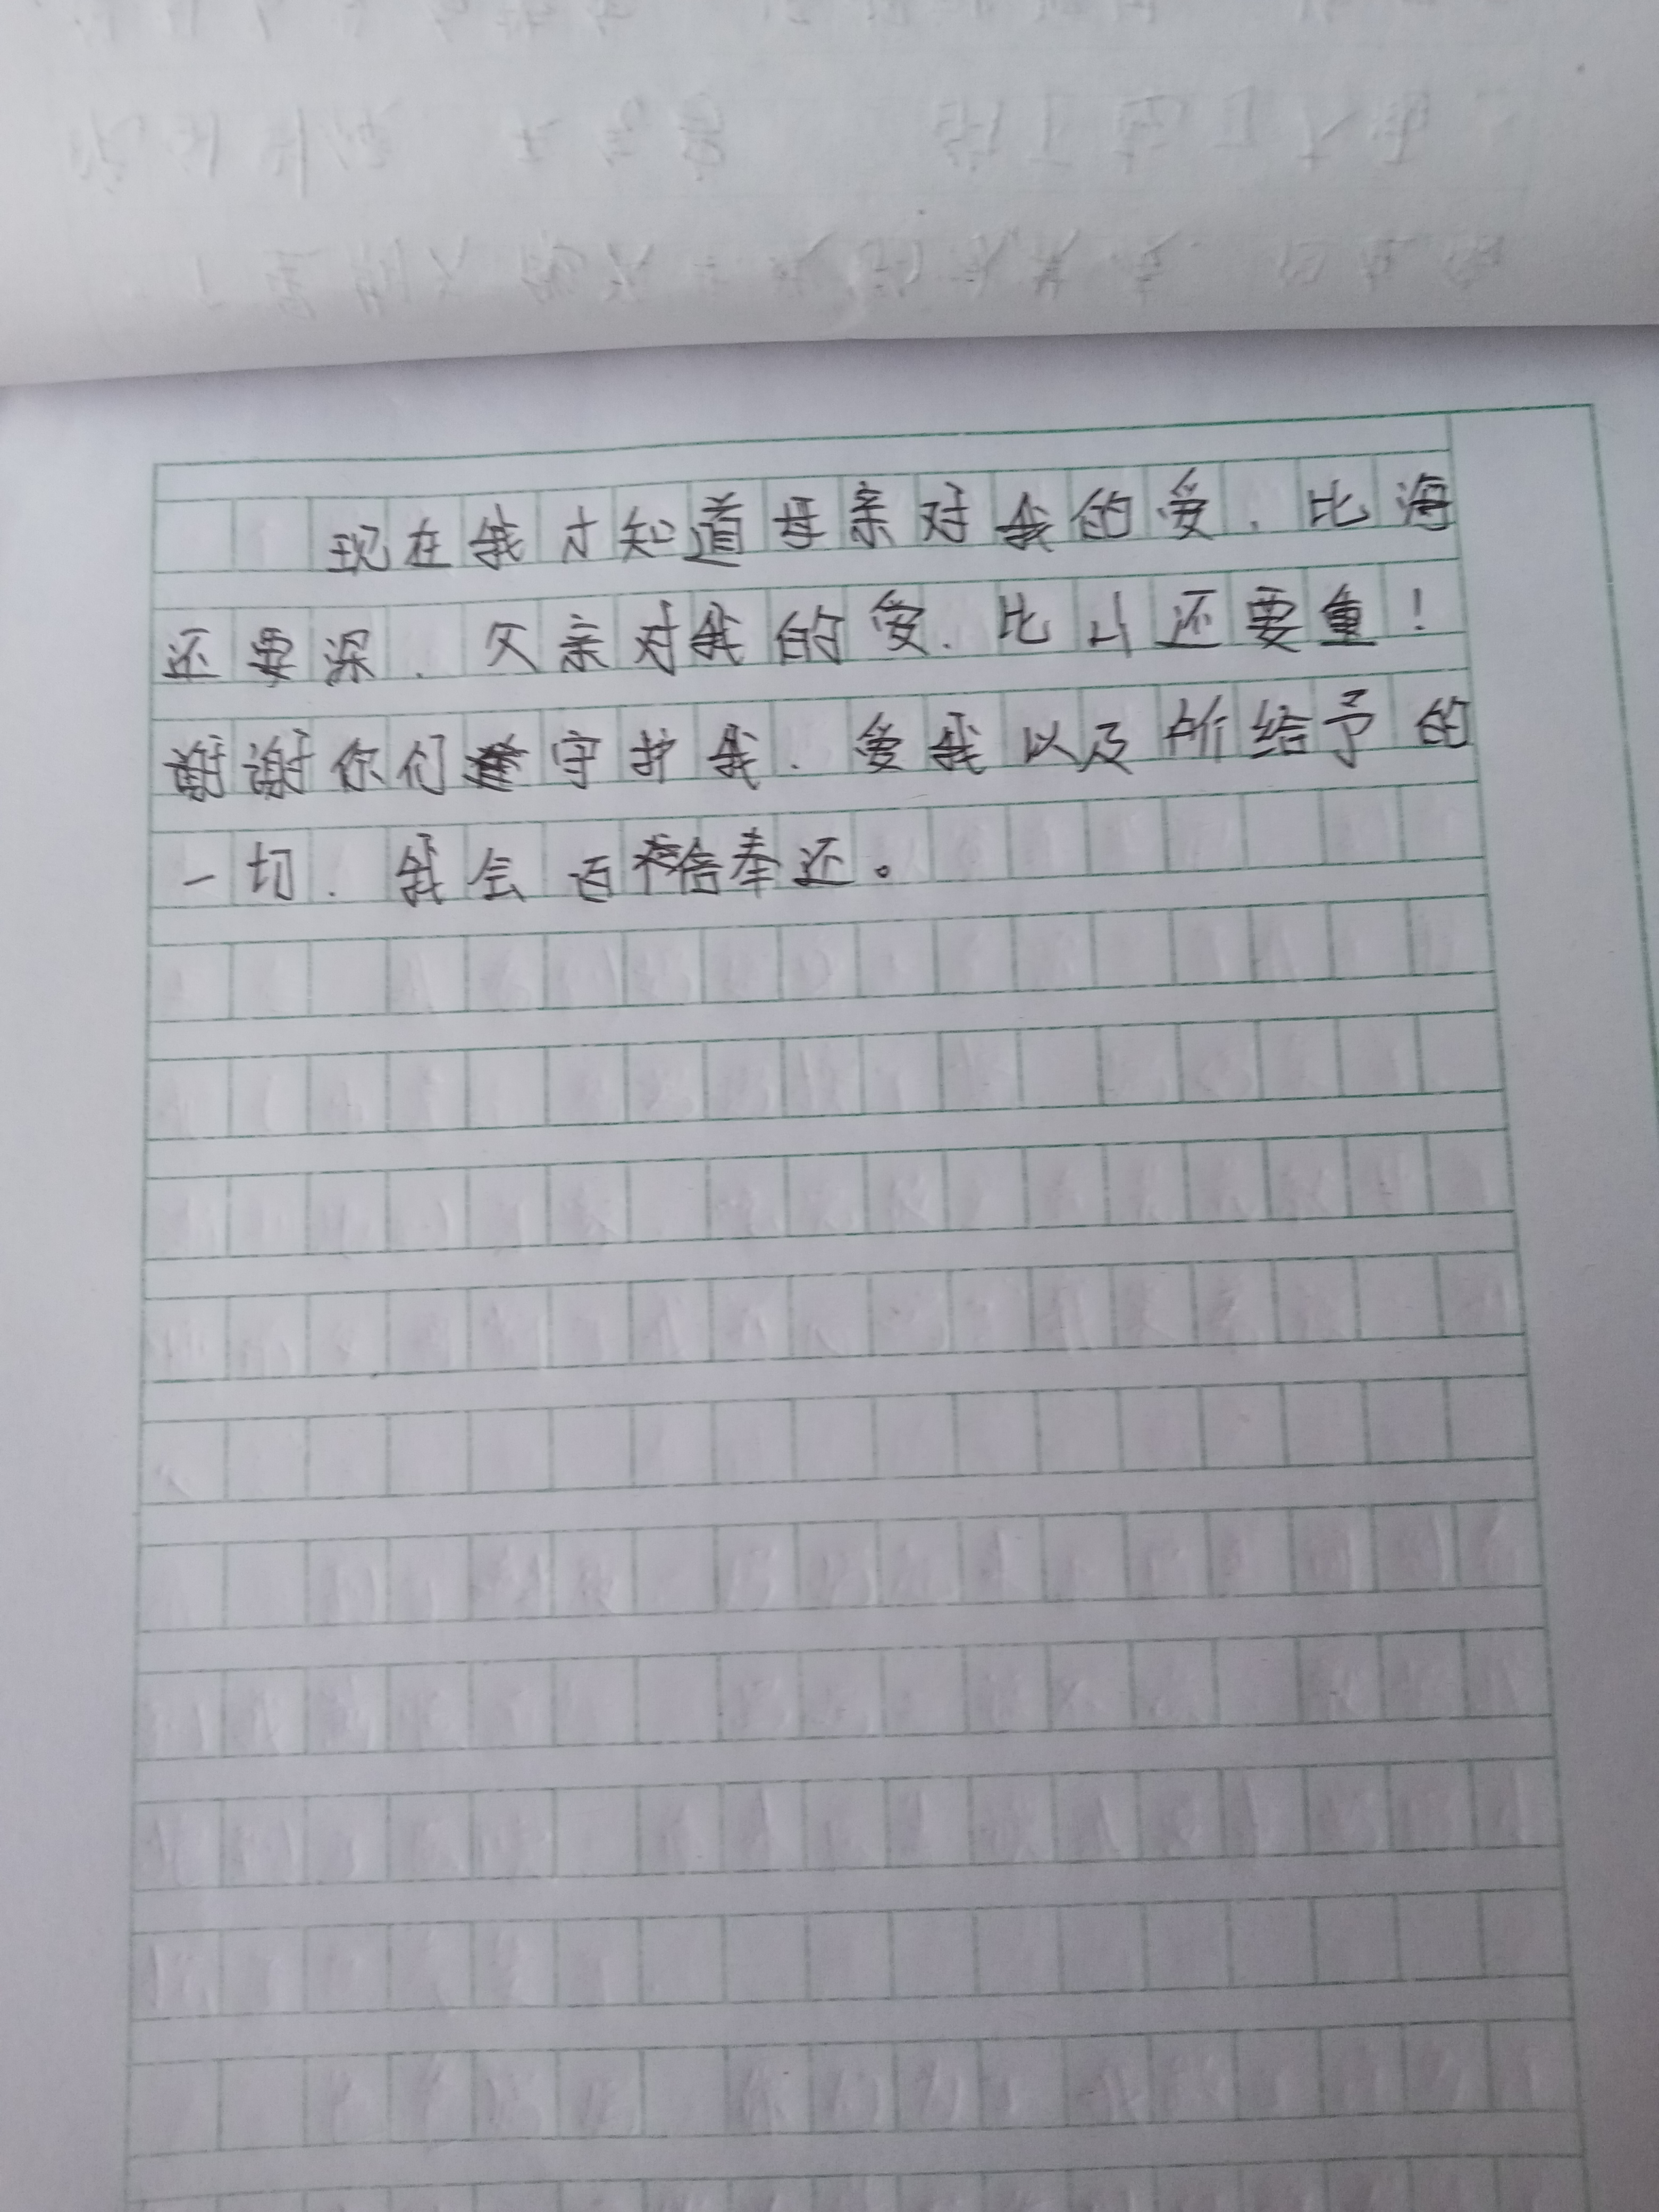 现在我才知道母亲对我的爱，比海
还要深，父亲对我的爱，比山还要重！
谢谢你们守护我，爱我以及所给予的
一切，我会百倍奉还。